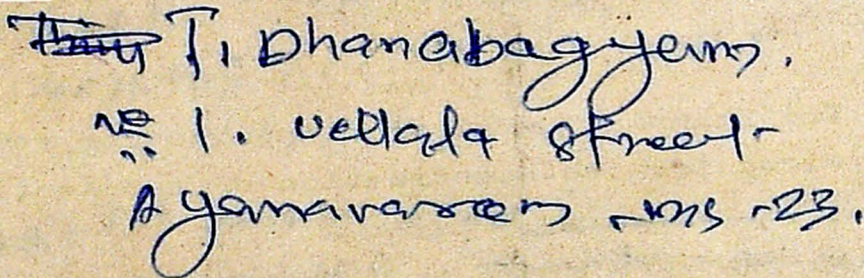 T. Dhanabagyam.
No 1. Vellala Street
Ayanavaram, Ms -23.